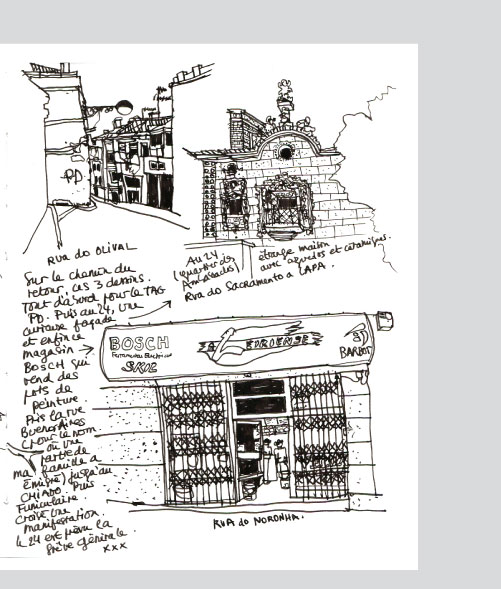 PD
RUA DO OLIVAL
Sur le chemin du
retour, ces 3 dessins.
Tout d'abord pour le TAG
PD. Puis au 24, une
curieuse façade
et enfin ce
magasin →
BOSCH qui
vend des
pots de
peinture.
Puis la rue
Buenos Aires
(pour le nom
où une
partie de
ma famille a
émigré) jusqu'au
CHIADO. Puis
Funiculaire
Croisé une
manifestation.
le 24 est prévu la
Grève générale.
xxx
AU 24
(quartier des
Ambassades)
étrange maison
avec azuelos et céramiques.
Rua do Sacramento a LAPA.
BOSCH
SKIL
BARBOT
RUA do NORONHA.